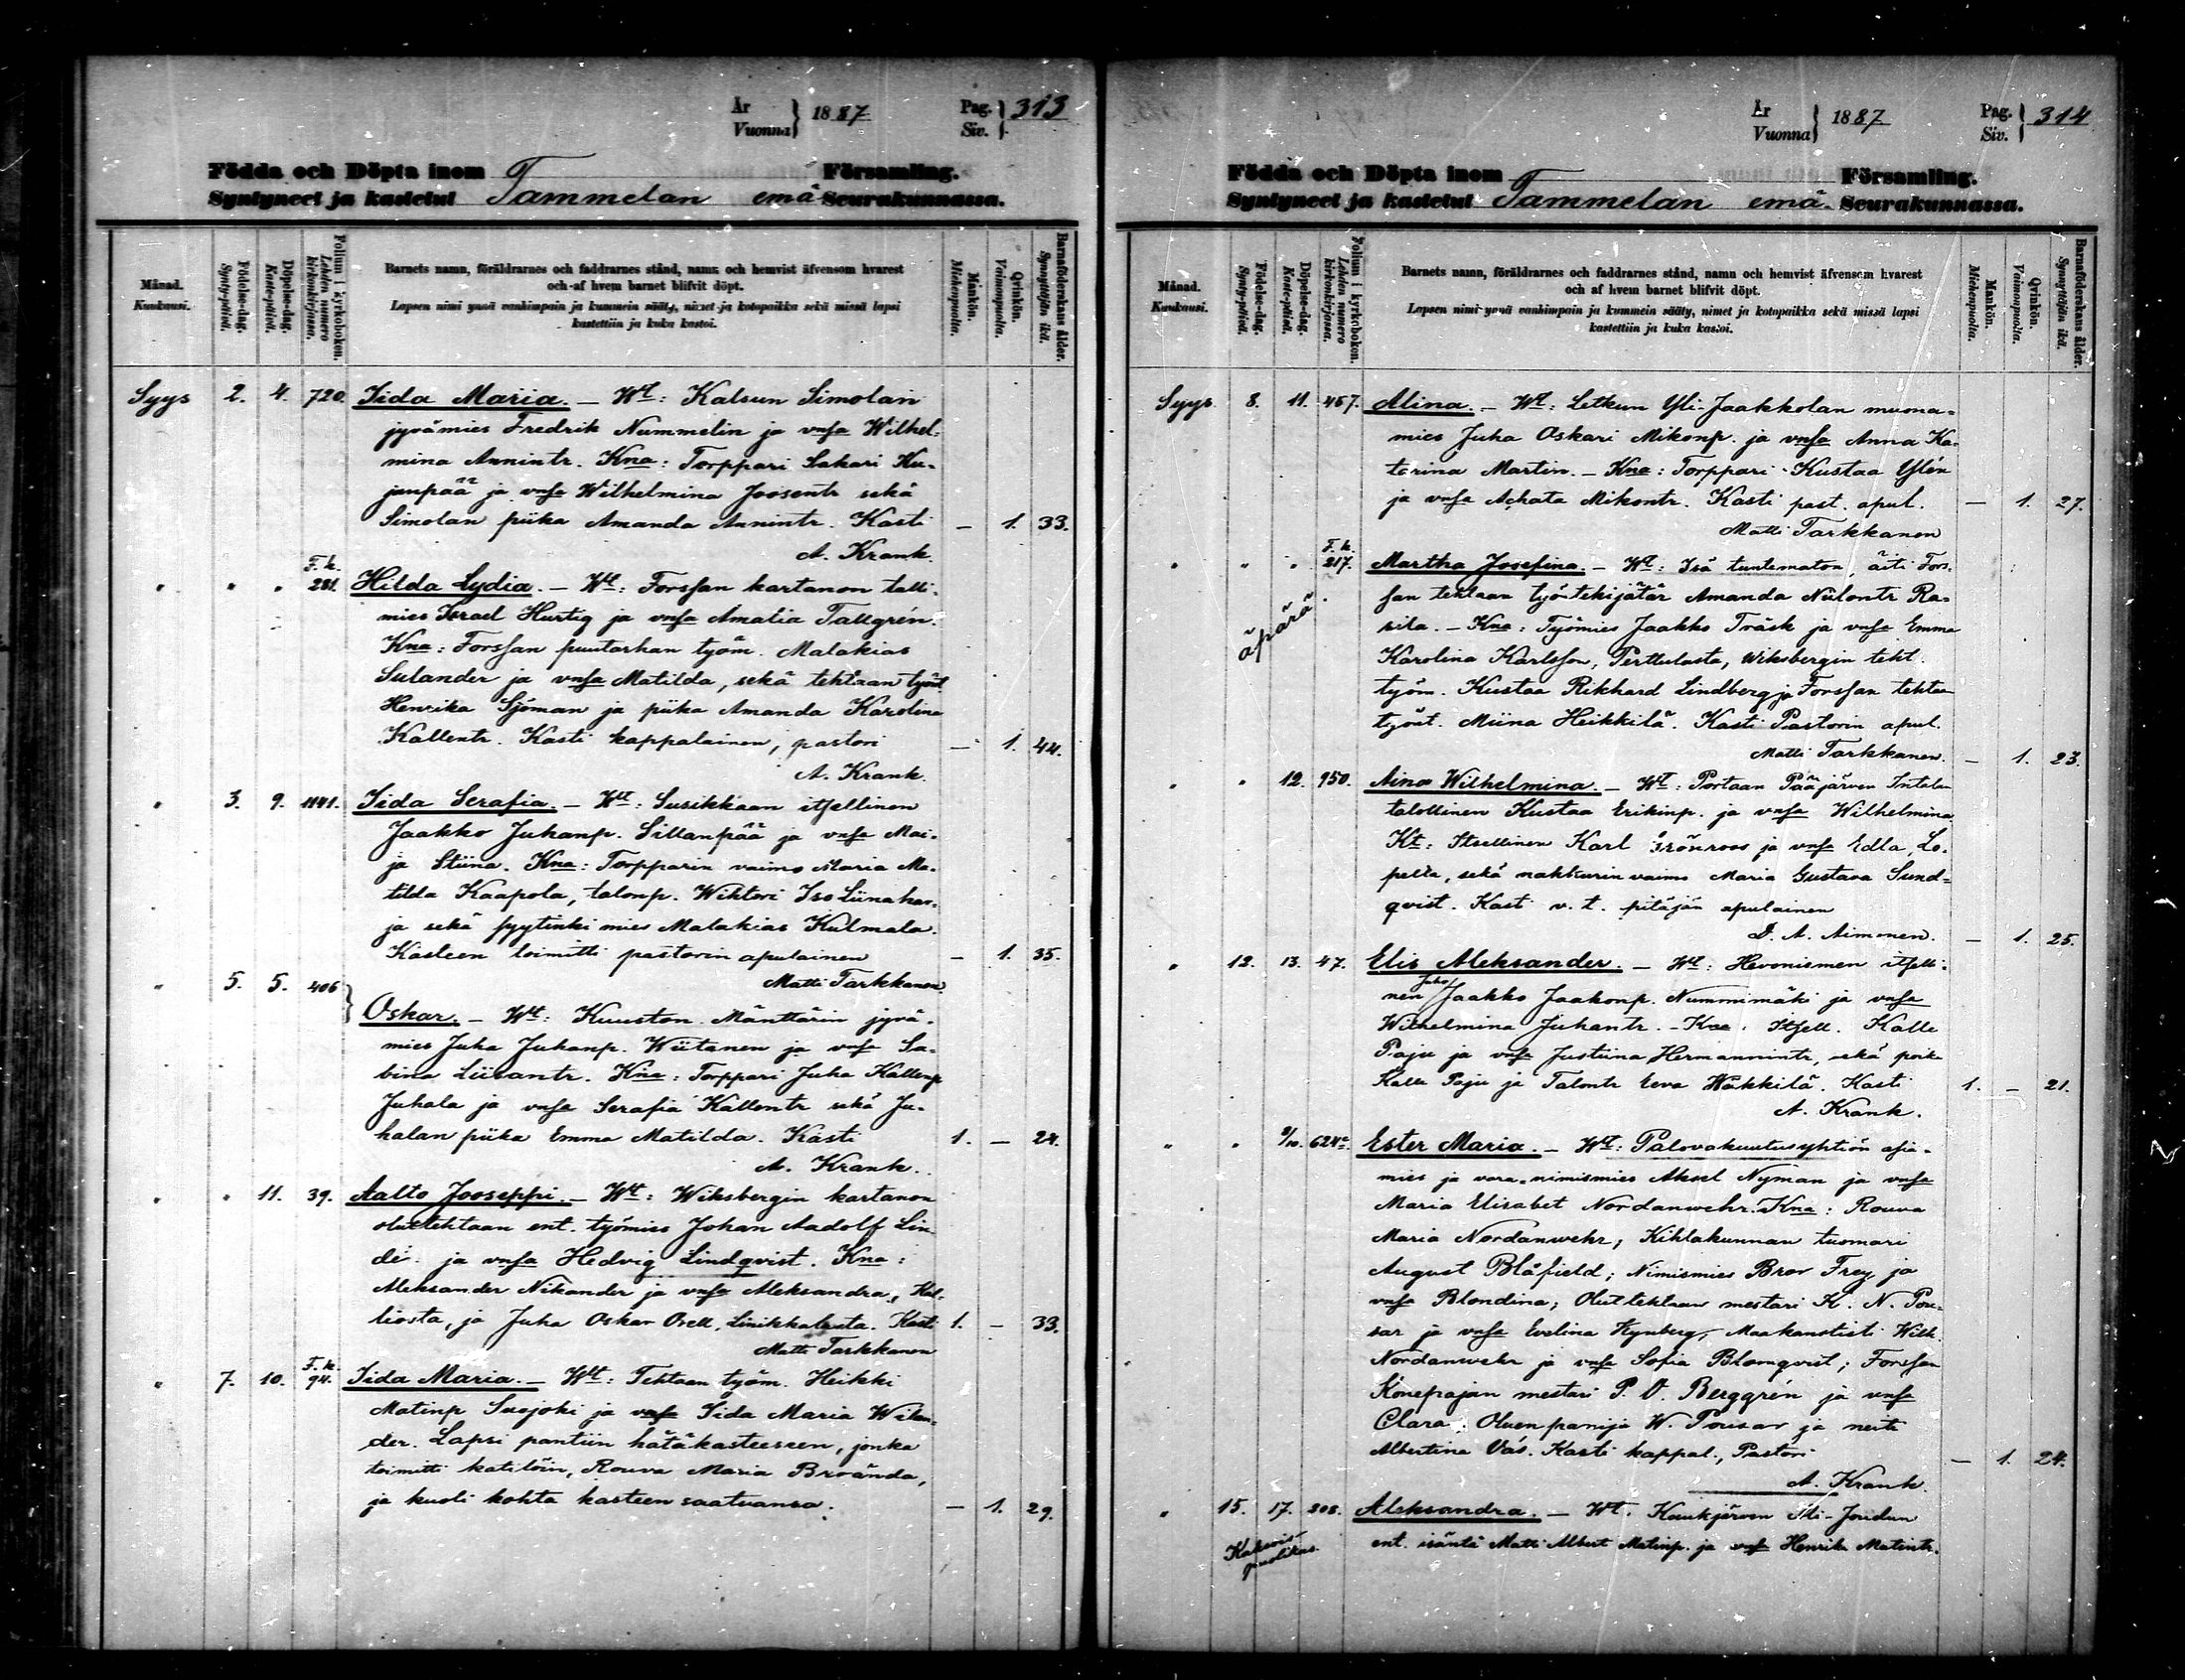 År
Vuonna } 1887
Pag.
Siv. } 313
Födda och Döpta inom Församling.
Syntyneet ja kastetut Tammelan emä Seurakunnassa.
Månad.
Kuukausi.
Födelse-dag.
Synty-päivä.
Döpelse-dag.
Kaste-päivä.
Folium i kyrkoboken.
Lehden numero kirkonkirjassa.
Barnets namn, föräldrarnes och faddrarnes stånd, namn och hemvist äfvensom hvarest
och af hvem barnet blifvit döpt.
Lapsen nimi ynnä vanhimpain ja kummein sääty, nimet ja kotopaikka sekä missä lapsi
kastettiin ja kuka kastoi.
Mankön.
Miehenpuolta.
Qvinkön.
Vaimonpuolta.
Barnaföderskans ålder.
Synnyttäjän ikä.
Syys 2. 4. 720. Iida Maria. – Wt: Kalsun Simolan
jyvämies Fredrik Nummelin ja vnsa Wilhel-
mina Annintr. Kna: Torppari Sakari Ku-
junpää ja vnsa Wilhelmina Joosentr sekä
Simolan piika Amanda Annintr. Kasti – 1. 33.
A. Krank.
" " " F.k. 281. Hilda Lydia. – Wt: Forssan kartanon talli-
mies Israel Hurtig ja vnsa Amalia Tallgrén.
Kna: Forssan puutarhan työm. Malakias
Sulander ja vnsa Matilda, sekä tehtaan työnt.
Henrika Sjöman ja piika Amanda Karolina
Kallentr. Kasti kappalainen, pastori – 1. 44.
A. Krank.
" 3. 9. 1141. Iida Serafia. – Wt: Susikkaan itsellinen
Jaakko Juhanp. Sillanpää ja vnsa Mai-
ja Stiina. Kna: Torpparin vaimo Maria Ma-
tilda Kaapola, talonp. Wihtori Iso Liinahar-
ja sekä pyytinki mies Malakias Kulmala.
Kasteen toimitti pastorin apulainen – 1. 35.
Matti Tarkkanen.
" 5. 5. 406 } Oskar. – Wt: Kuuston Mänttärin jyvä-
mies Juha Juhanp. Wiitanen ja vnsa Sa-
bina Liisantr. Kna: Torppari Juha Kallenp
Juhala ja vnsa Serafia Kallentr sekä Ju-
halan piika Emma Matilda. Kasti 1. – 24.
A. Krank.
" " 11. 39. Aalto Jooseppi. – Wt: Wiksbergin kartanon
oluttehtaan ent. työmies Johan Aadolf Lin-
dé. ja vnsa Hedvig Lindqvist. Kna:
Aleksander Nikander ja vnsa Aleksandra, Kal-
liosta, ja Juha Oskar Orell, Linikkalasta. Kasti 1. – 33.
Matti Tarkkanen
" 7. 10. F.k. 94. Iida Maria. – Wt: Tehtaan työm. Heikki
Matinp Suojoki ja vnsa Iida Maria Wilan-
der. Lapsi pantiin hätäkasteeseen, jonka
toimitti katilöin, Rouva Maria Broända,
ja kuoli kohta kasteen saatuansa. – 1. 29.
År
Vuonna } 1887.
Pag.
Siv. } 314
Födda och Döpta inom Församling.
Syntyneet ja kastetut Tammelan emä Seurakunnassa.
Månad.
Kuukausi.
Födelse-dag.
Synty-päivä.
Döpelse-dag.
Kaste-päivä.
Folium i kyrkoboken.
Lehden numero kirkonkirjassa.
Barnets namn, föräldrarnes och faddrarnes stånd, namn och hemvist äfvensom hvarest
och af hvem barnet blifvit döpt.
Lapsen nimi ynnä vanhimpain ja kummein sääty, nimet ja kotopaikka sekä missä lapsi
kastettiin ja kuka kastoi.
Mankön.
Miehenpuolta.
Qvinkön.
Vaimonpuolta.
Barnaföderskans ålder.
Synnyttäjän ikä.
Syys 8. 11. 457. Alina. – Wt: Letkun Yli-Jaakkolan muona-
mies Juha Oskari Mikonp. ja vnsa Anna Ka-
tarina Martin. – Kna: Torppari Kustaa Ylén
ja vnsa Achata Mikontr. Kasti past. apul. – 1. 27.
Matti Tarkkanen
" " " F.k. 217. Martha Josefina. – Wt: Isä tuntematon, äiti Fors-
san tehtaan työntekijätär Amanda Niilontr Ra-
äpärä sila. – Kna: Työmies Jaakko Träsk ja vnsa Emma
Karolina Karlsson, Perttulasta, Wiksbergin teht.
työm. Kustaa Rikhard Lindberg ja Forssan tehtaan
työnt. Miina Heikkilä. Kasti Pastorin apul.
Matti Tarkkanen. – 1. 23.
" " 12. 950. Aina Wilhelmina. – Wt: Portaan Pääjärven Intalan
talollinen Kustaa Erikinp. ja vnsa Wilhelmina.
Kt: Itsellinen Karl Grönroos ja vnsa Edla, Lo-
pelta, sekä nahkurin vaimo Maria Gustava Sund-
qvist. Kasti v. t. pitäjän apulainen
D. A. Aimonen. – 1. 25.
" 12. 13. 47. Elis Aleksander. – Wt: Hevoniemen itselli-
nen Juho Jaakko Jaakonp. Nummimäki ja vnsa
Wilhelmina Juhantr. – Kna: Itsell. Kalle
Paju ja vnsa Justiina Hermannintr, sekä poik.
Kalle Paju ja Talontr Eeva Häkkilä. Kasti 1. – 21.
A. Krank.
" " 2/10. 624 Ester Maria. – Wt: Palovakuutusyhtiön asia-
mies ja vara-nimismies Aksel Nyman ja vnsa
Maria Elisabet Nordanwehr. Kna: Rouva
Maria Nordanwehr; Kihlakunnan tuomari
August Blåfield; Nimismies Bror Frey ja
vnsa Blondina; Oluttehtaan mestari K. N. Pou-
sar ja vnsa Evelina Kynberg; Maakanslisti Wilh.
Nordanwehr ja vnsa Sofia Blomqvist; Forssan
Konepajan mestari P. O. Berggrén ja vnsa
Clara; Oluen panija W. Pousar ja neiti
Albertina Vás. Kasti kappal., Pastori – 1. 24.
A. Krank
" 15. 17. 208. Aleksandra. – Wt. Kaukjärven Ali-Joudun
Kaksois puolikas. ent. isäntä Matti Albert Matinp. ja vnsa Henrika Matintr.